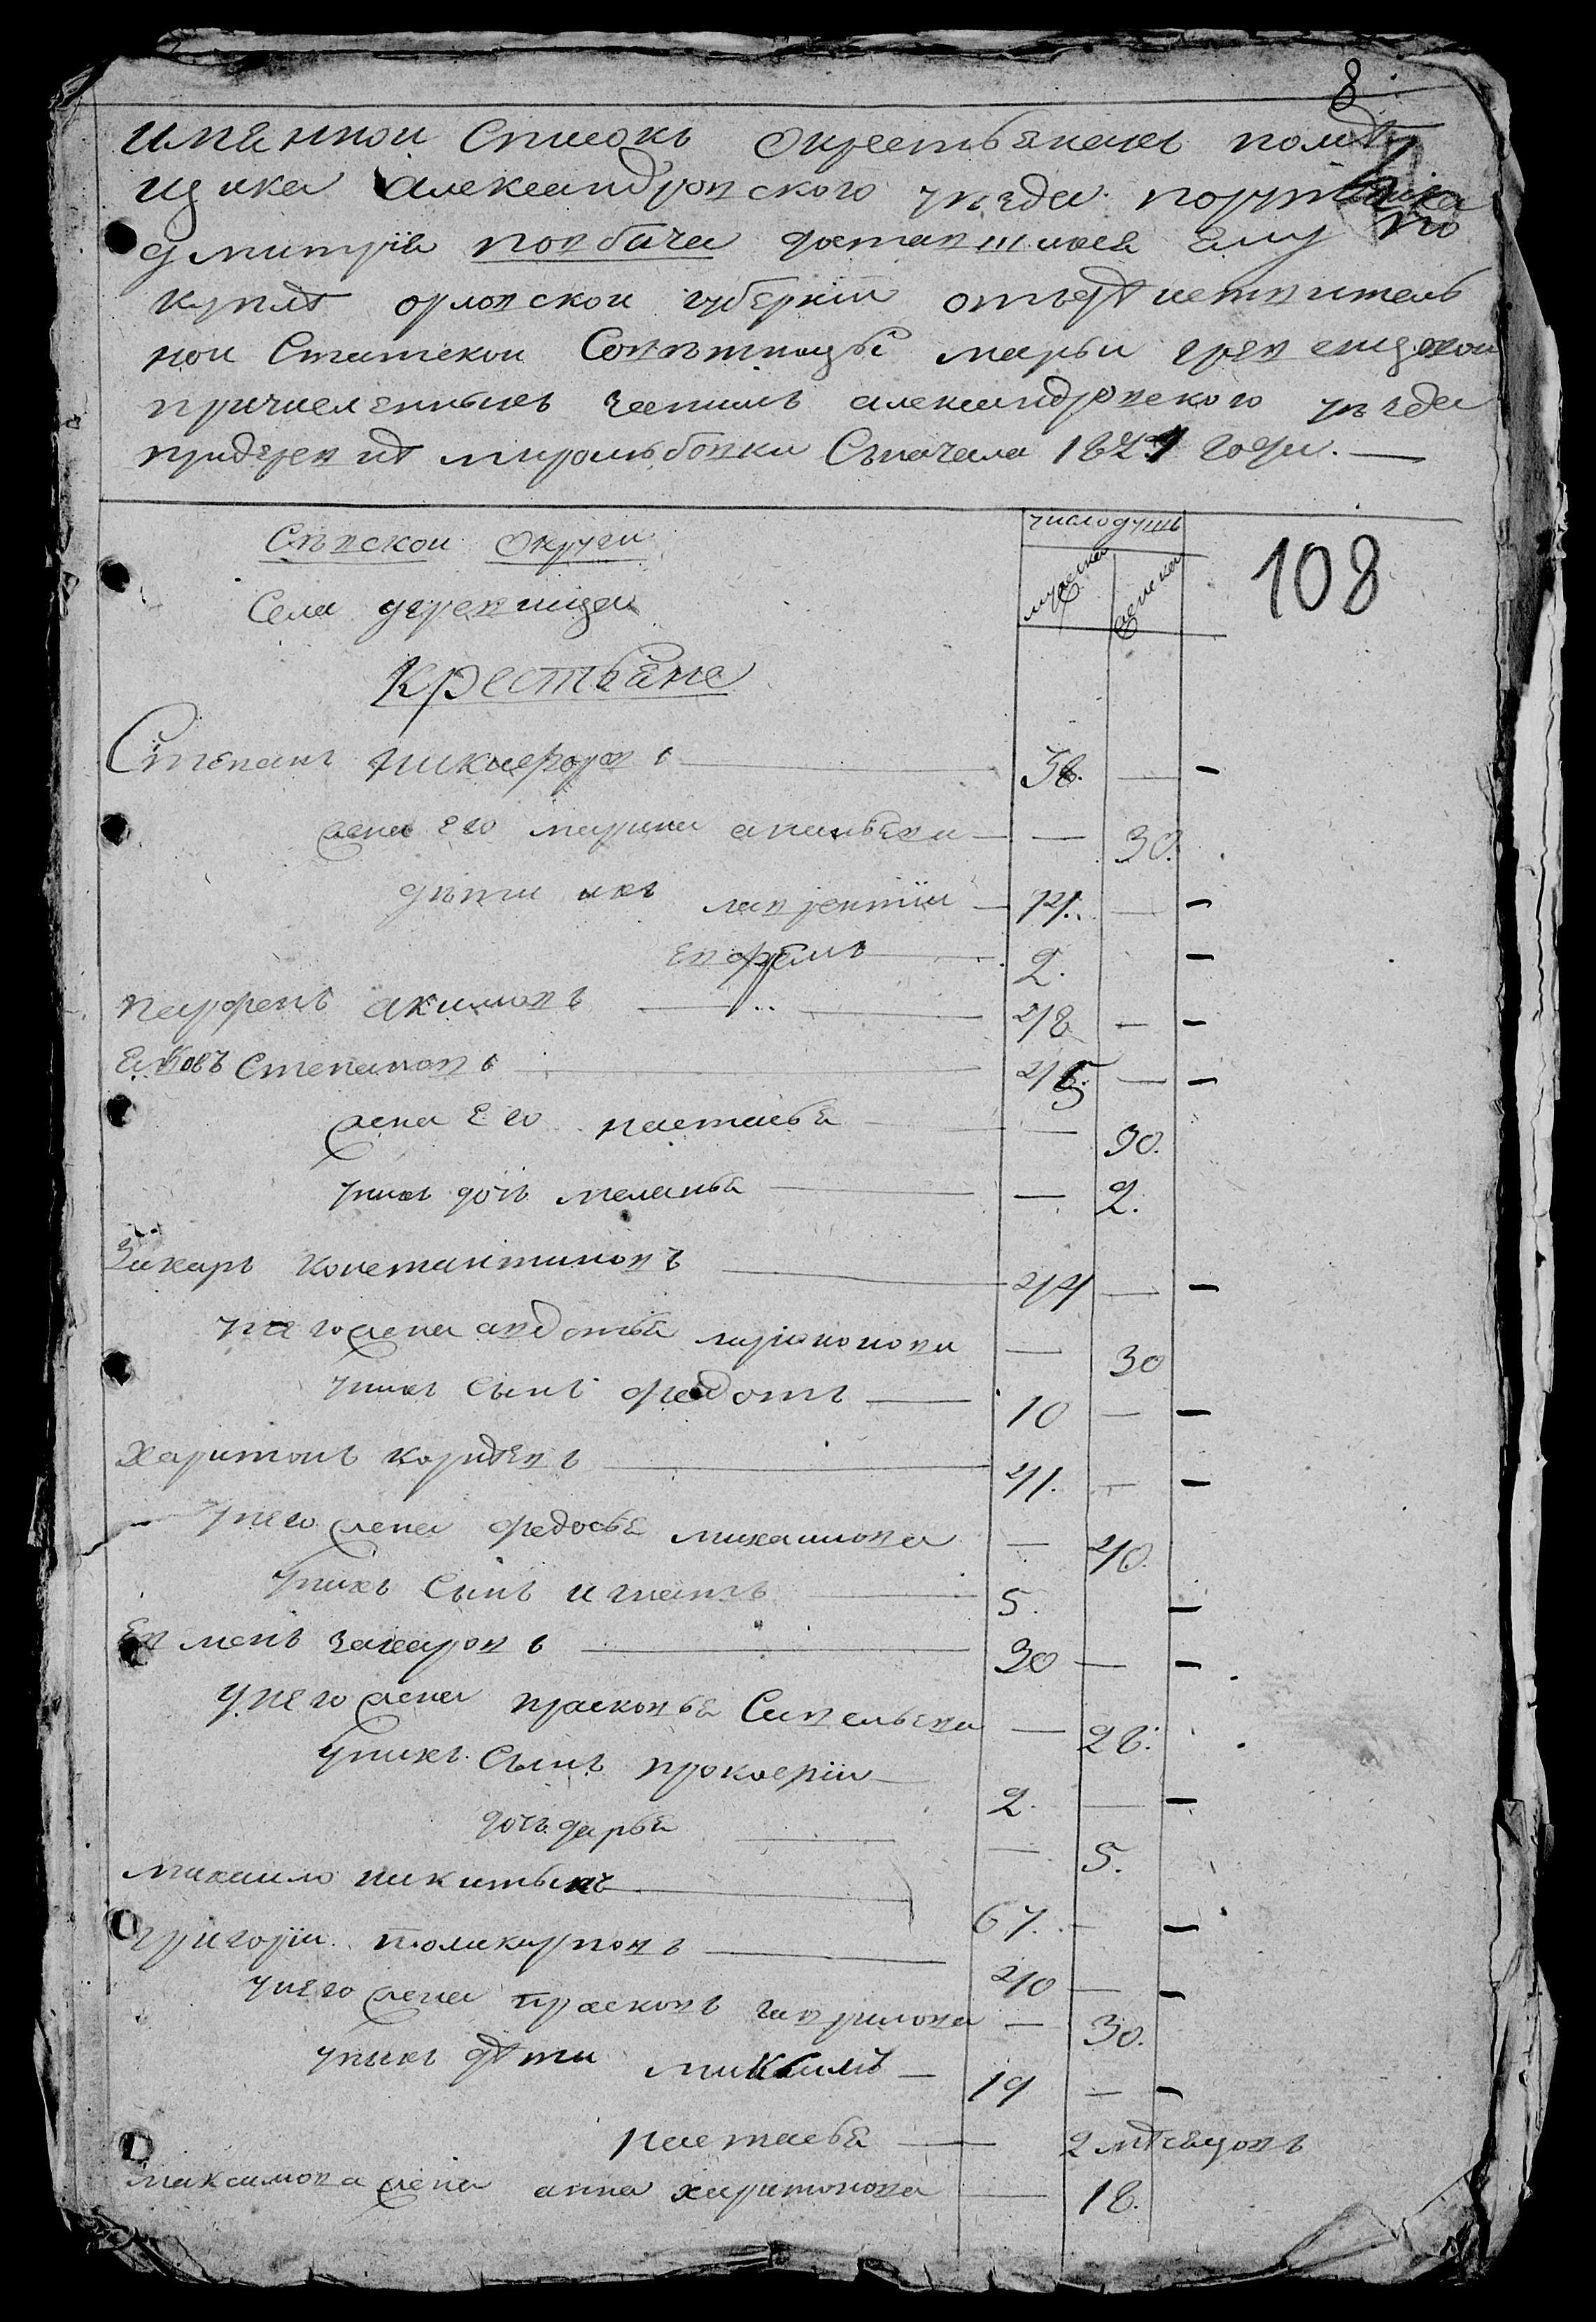 8
имянной списокъ окрестьянахъ помѣ
щика александровскаго уезда порутчика
дмитрія ковбача доставшихся ему по
куплѣ орловской губерніи отъ действитель
ной статской советницы марьи
причисленныхъ засимъ александровскаго уезда
придеревнѣ миролюбовки съначала 1821 года. —
севской округи
села
число душъ
мужеска
женска
108
крестьяне
Степанъ никифоровъ — 38. — —
жена его марина ананьева — — 30.
дети ихъ лаврентій — 14. — —
ефремъ — 2. —
парфенъ акимовъ — 48 — —
яковъ степановъ — 45. — —
жена его настасья — — 30.
уних дочь меланья — — 2.
Захаръ константиновъ — 44 — —
унего жена авдотья миронова — 30
унихъ сынъ федотъ — 10 — —
харитонъ корнѣевъ — 41. — —
унего жена федосья михаилова — 40.
унихъ сынъ игнатъ — 5. —
захаровъ — 30 — —
унего жена прасковья савельева — 28.
унихъ сынъ прокофій — 2. — —
дочь дарья — — 5.
михаило никитинъ — 67. — —
григорій поликарповъ — 40 — —
унего жена прасковья гаврилова — 30.
унихъ дѣти максимъ — 19 — —
настасья — 2 мѣсяцовъ
максимова жена анна харитонова — 18.